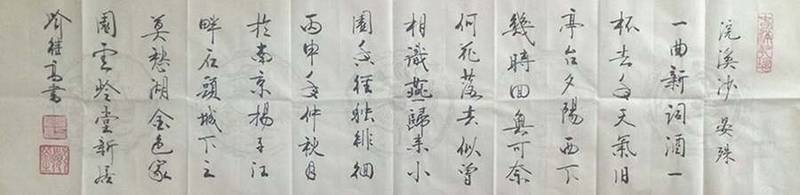 浣溪沙 晏殊
一曲新詞酒一
杯去年天氣旧
亭台夕陽西下
幾時回無可奈
何花落去似曾
相識燕歸来小
園香徑獨徘徊
丙申年仲秋月
於南京揚子江
畔石頭城下之
莫愁湖金色家
園雲堂新居
喻繼高書